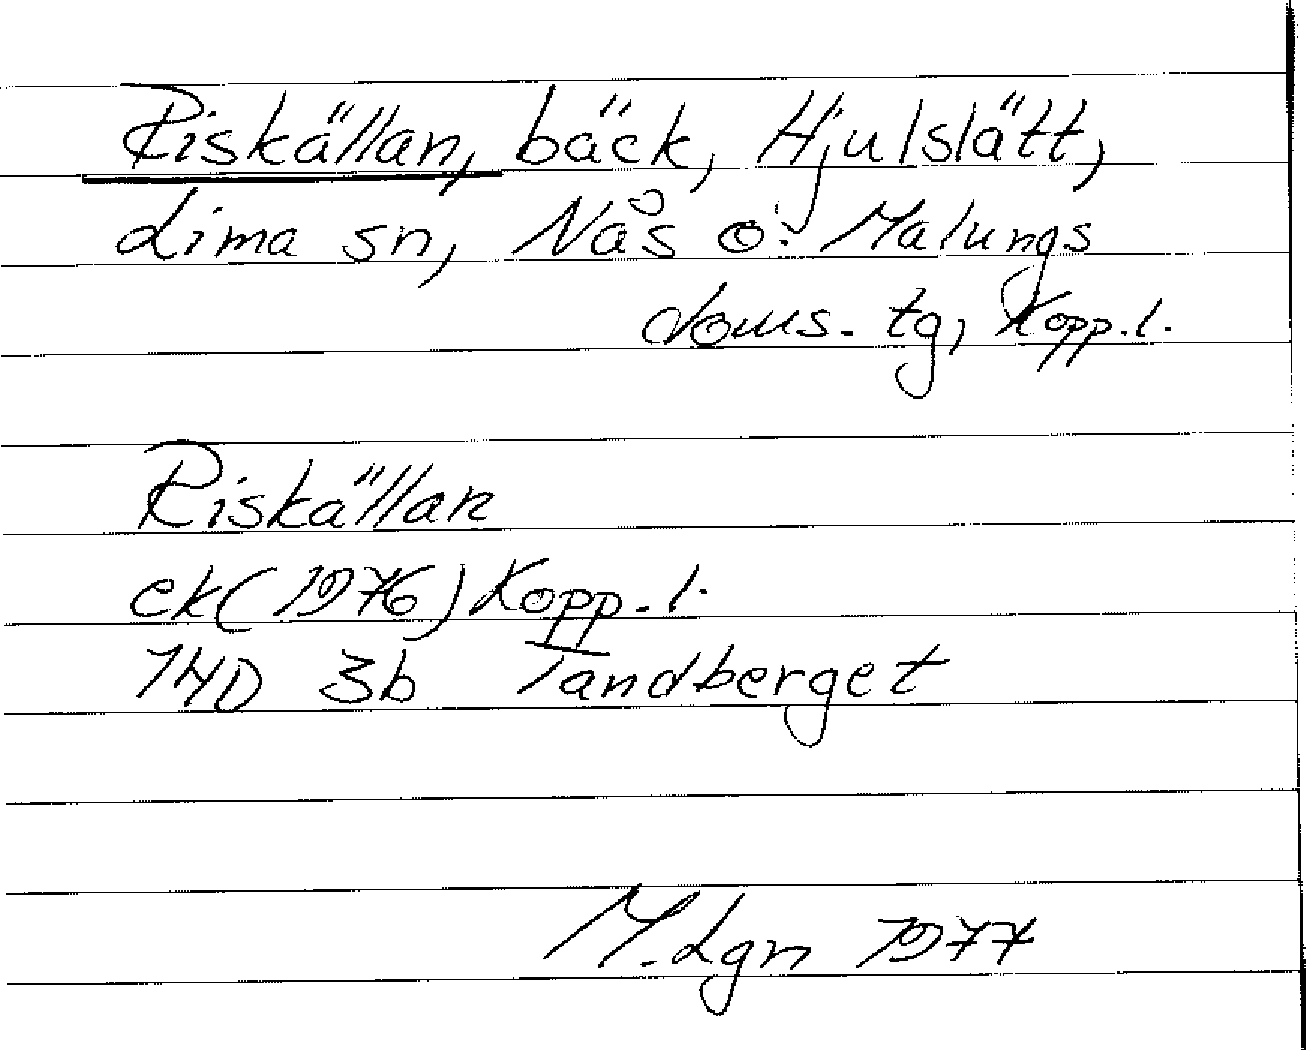 Riskällan, bäck, Hjulslätt,
Lima sn, Nås o. Malungs
doms. tg, Kopp. l.
Riskällan
ek (1976) Kopp. l.
14D 3b Tandberget
M. Lgn 1977